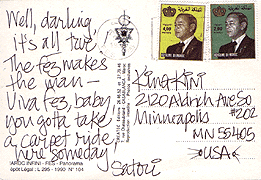 Well, darling
it's all true!
The fez makes
the man —
Viva fez, baby
you gotta take
a carpet ride
here someday
Satori
King Kini
2120 Aldrich Ave So
#202
Minneapolis
MN 55405
USA
المملكة المغربية
ROYAUME DU MAROC
2.00
MAROC INFINI - FES - Panorama
Dépôt Légal : L 295 - 1990 N° 104